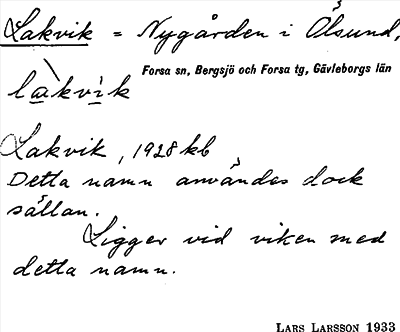 Lakvik = Nygården i Ölsund,
Forsa sn, Bergsjö och Forsa tg, Gävleborgs län
làkvik
Lakvik, 1928 kb
Detta namn användes dock
sällan.
Ligger vid viken med
detta namn.
LARS LARSSON 1933